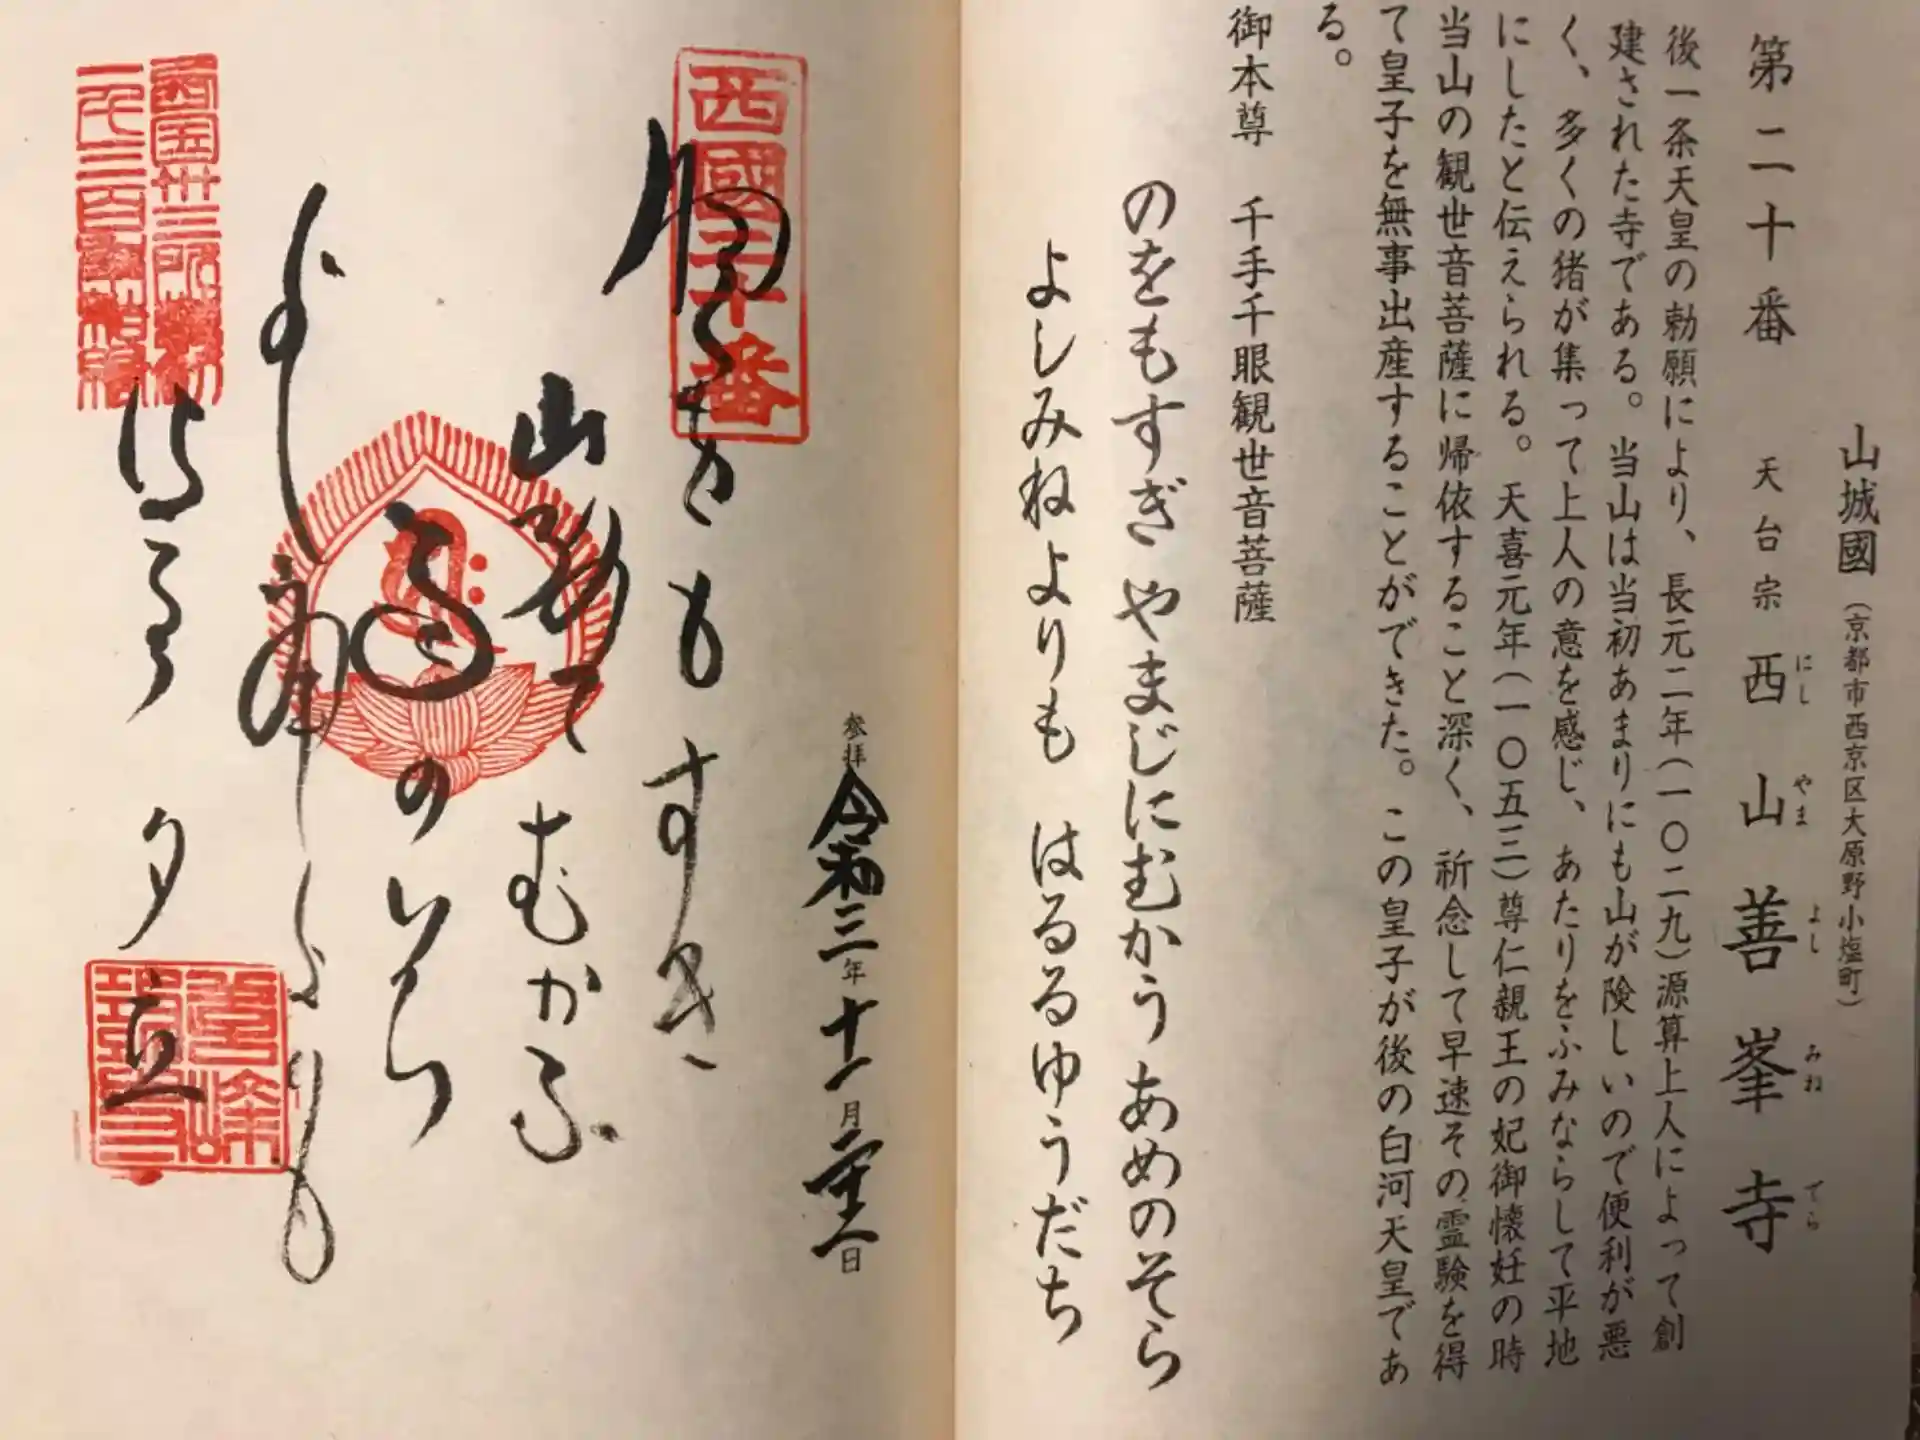 山城國（京都市西京区大原野小塩町）
第二十番　天台宗　西山善峯寺
にし　やま　よし　みね　でら
後一条天皇の勅願により、長元二年（一〇二九）源算上人によって創
建された寺である。当山は当初あまりにも山が険しいので便利が悪
く、多くの猪が集って上人の意を感じ、あたりをふみならして平地
にしたと伝えられる。天喜元年（一〇五三）尊仁親王の妃御懐妊の時
当山の観世音菩薩に帰依すること深く、祈念して早速その霊験を得
て皇子を無事出産することができた。この皇子が後の白河天皇であ
る。
御本尊　千手千眼観世音菩薩
のをもすぎ やまじにむかう あめのそら
よしみねよりも はるるゆうだち
参拝 令和三年十一月二十一日
西國二十番
をもすき
山路てむかふ
雨のそら
よし峯よりも
夕立